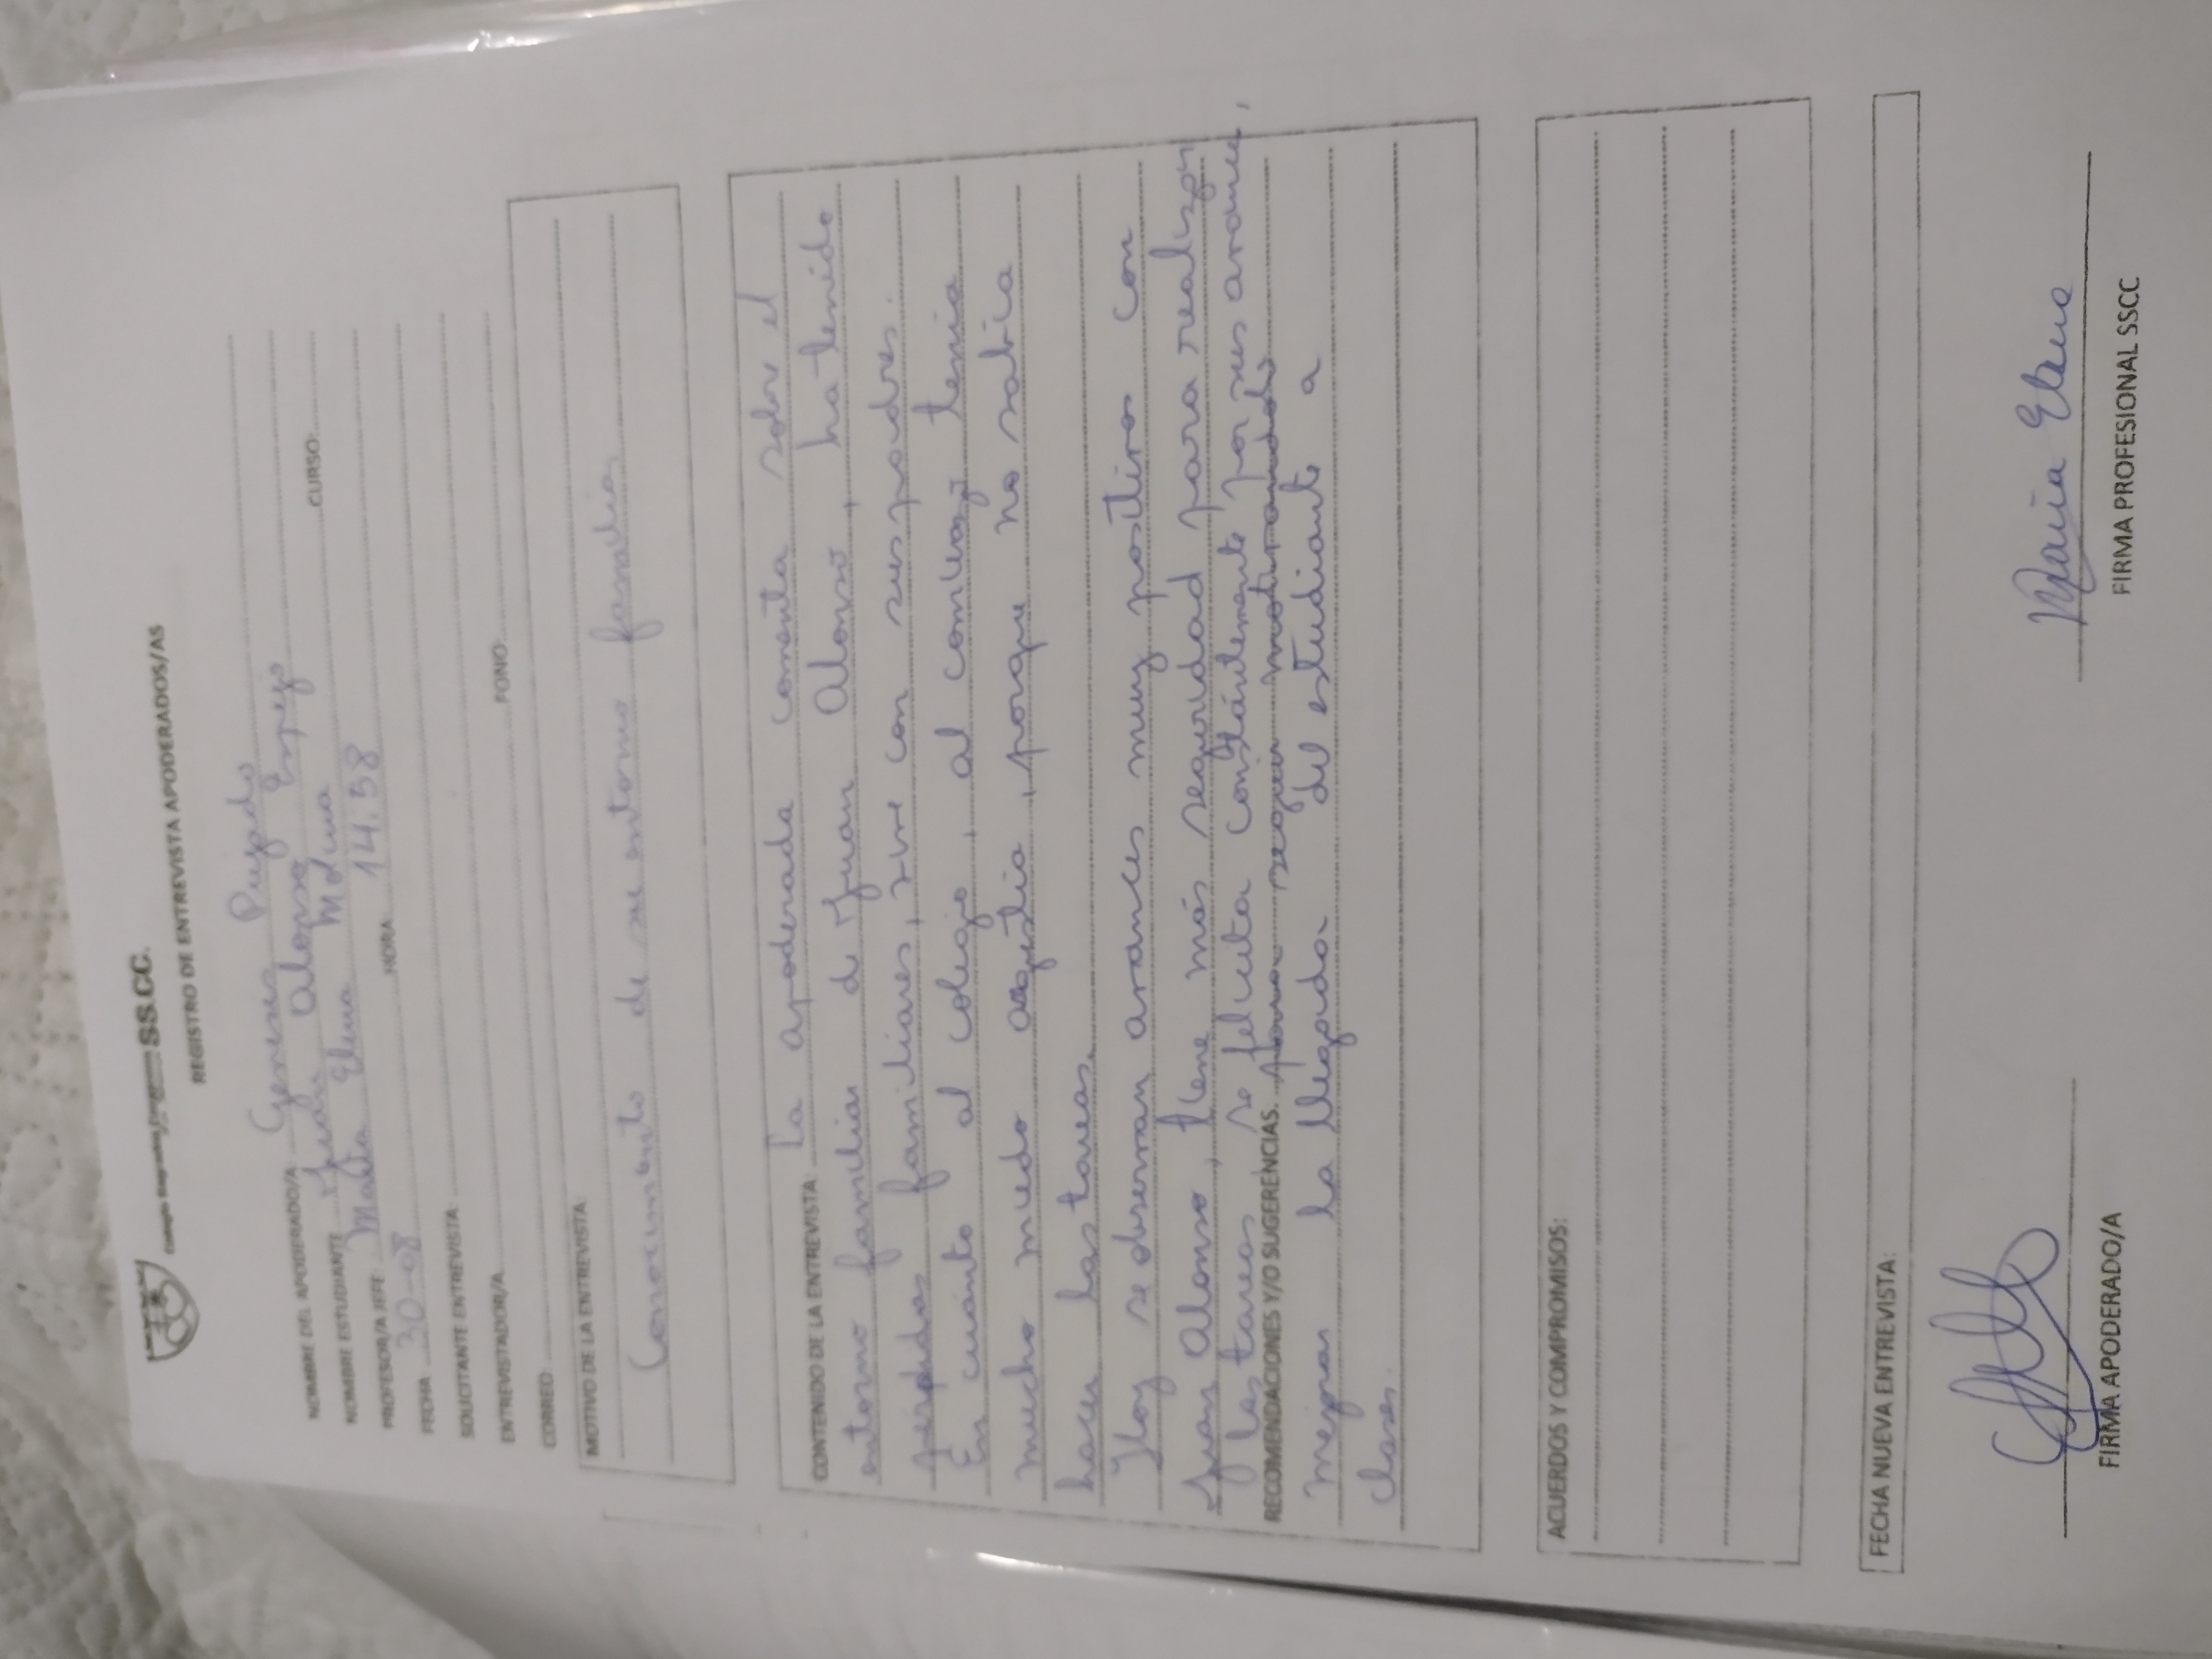 SS.CC.
REGISTRO DE ENTREVISTA APODERADOS/AS
NOMBRE DEL APODERADO/A Genesis Pulgado
NOMBRE ESTUDIANTE Juan Alonso Espejo CURSO:
PROFESOR/A JEFE: María Elena Molina
FECHA 30-08 HORA 14.58
SOLICITANTE ENTREVISTA:
ENTREVISTADOR/A FONO:
CORREO:
MOTIVO DE LA ENTREVISTA:
Conocimiento de su entorno familiar
CONTENIDO DE LA ENTREVISTA: La apoderada comenta sobre el
entorno familiar de Juan Alonso, ha tenido
perdidas familiares, vive con sus padres.
En cuanto al colegio, al comienzo tenia
mucho miedo angustia, porque no sabia
hacer las tareas.
Hoy se observan avances muy positivos con
Juan Alonso, tiene más seguridad para realizar
las tareas se felicita constantemente por sus avances,
RECOMENDACIONES Y/O SUGERENCIAS. para seguir motivandolo
mejorar la llegada del estudiante a
clases.
ACUERDOS Y COMPROMISOS:
FECHA NUEVA ENTREVISTA:
María Elena
FIRMA APODERADO/A FIRMA PROFESIONAL SSCC